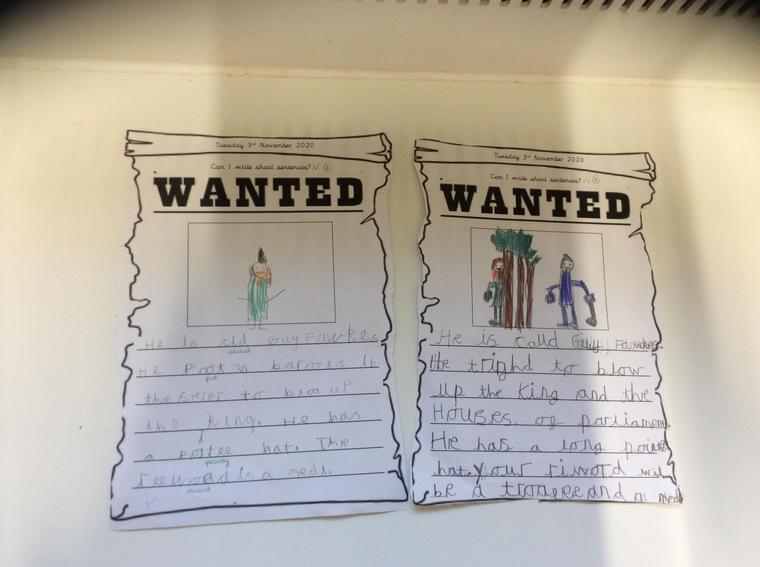 Tuesday 3rd November 2020
Can I write short sentences? //
WANTED
He is cld Guy Fawkes
called
He Poot 36 barools in
put
the to bloo up
the King. He has
a poitee hat. The
pointy
reeword is a medl.
reward
Tuesday 3rd November 2020
Can I write short sentences? //
WANTED
He is calld Guy Fawkes.
He trighd to blow
up the King and the
Houses of parliament
He has a long pointe
hat. your riword will
be a and a medl